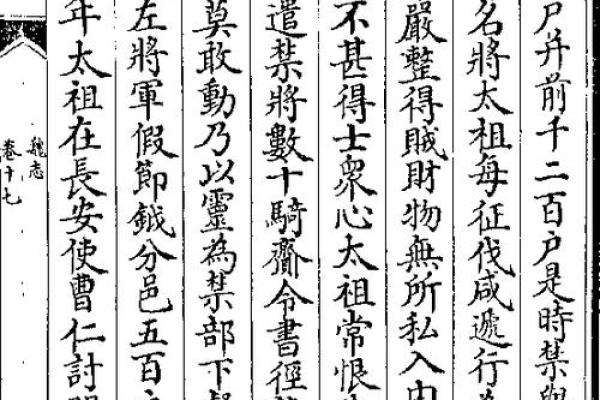 戸并前千二百戸是時禁與
名將太祖每征伐咸遞行為
嚴整得賊財物無所私入由
不甚得士衆心太祖常恨
遣禁將數十騎齎令書徑
莫敢動乃以靈為禁部下督
左將軍假節鉞分邑五百戸
年太祖在長安使曹仁討關
魏志
卷十七